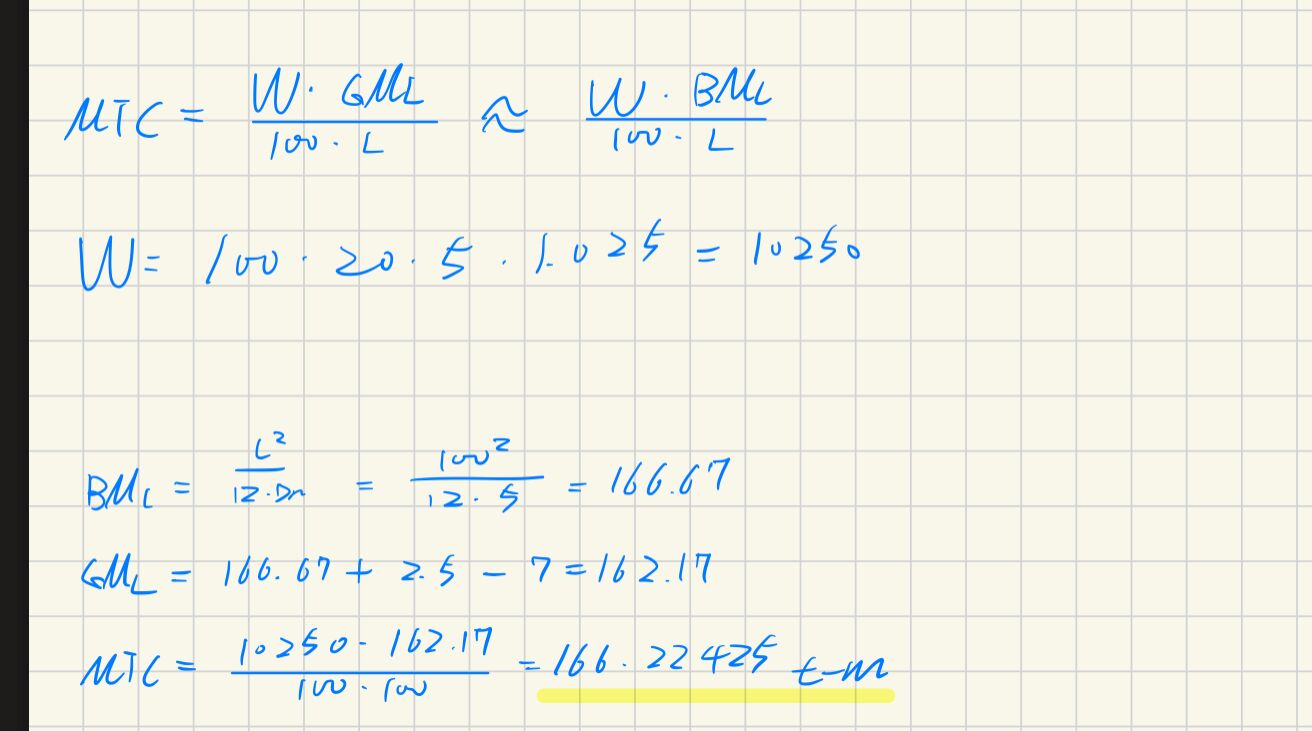 MTC = W · GML / 100 · L ≈ W · BML / 100 · L
W = 100 · 20 · 5 · 1.025 = 10250
BML = L² / 12 · Dm = 100² / 12 · 5 = 166.67
GML = 166.67 + 2.5 − 7 = 162.17
MTC = 10250 · 162.17 / 100 · 100 = 166.22425 t-m